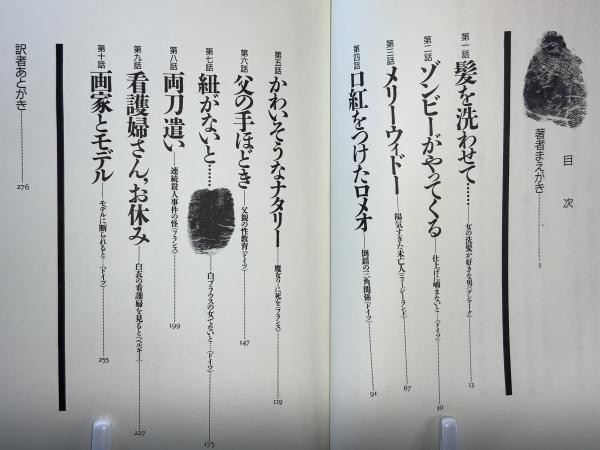 目次
著者まえがき 3
第一話 髪を洗わせて…… 女の洗髪が好きな男(デンマーク) 13
第二話 ゾンビーがやってくる 仕上げに噛まないと…(ドイツ) 39
第三話 メリーウィドー 陽気すぎた未亡人(ニュージーランド) 67
第四話 口紅をつけたロメオ 倒錯の三角関係(ドイツ) 91
第五話 かわいそうなナタリー 魔女りに死を(フランス) 119
第六話 父の手ほどき 父親の性教育(ドイツ) 147
第七話 紐がないと…… 白ブラウスの女でないと…(ドイツ) 175
第八話 両刀遣い 連続殺人事件の怪(フランス) 199
第九話 看護婦さん,お休み 白衣の看護婦を見ると(ベルギー) 227
第十話 画家とモデル モデルに断られると…(ドイツ) 255
訳者あとがき 276